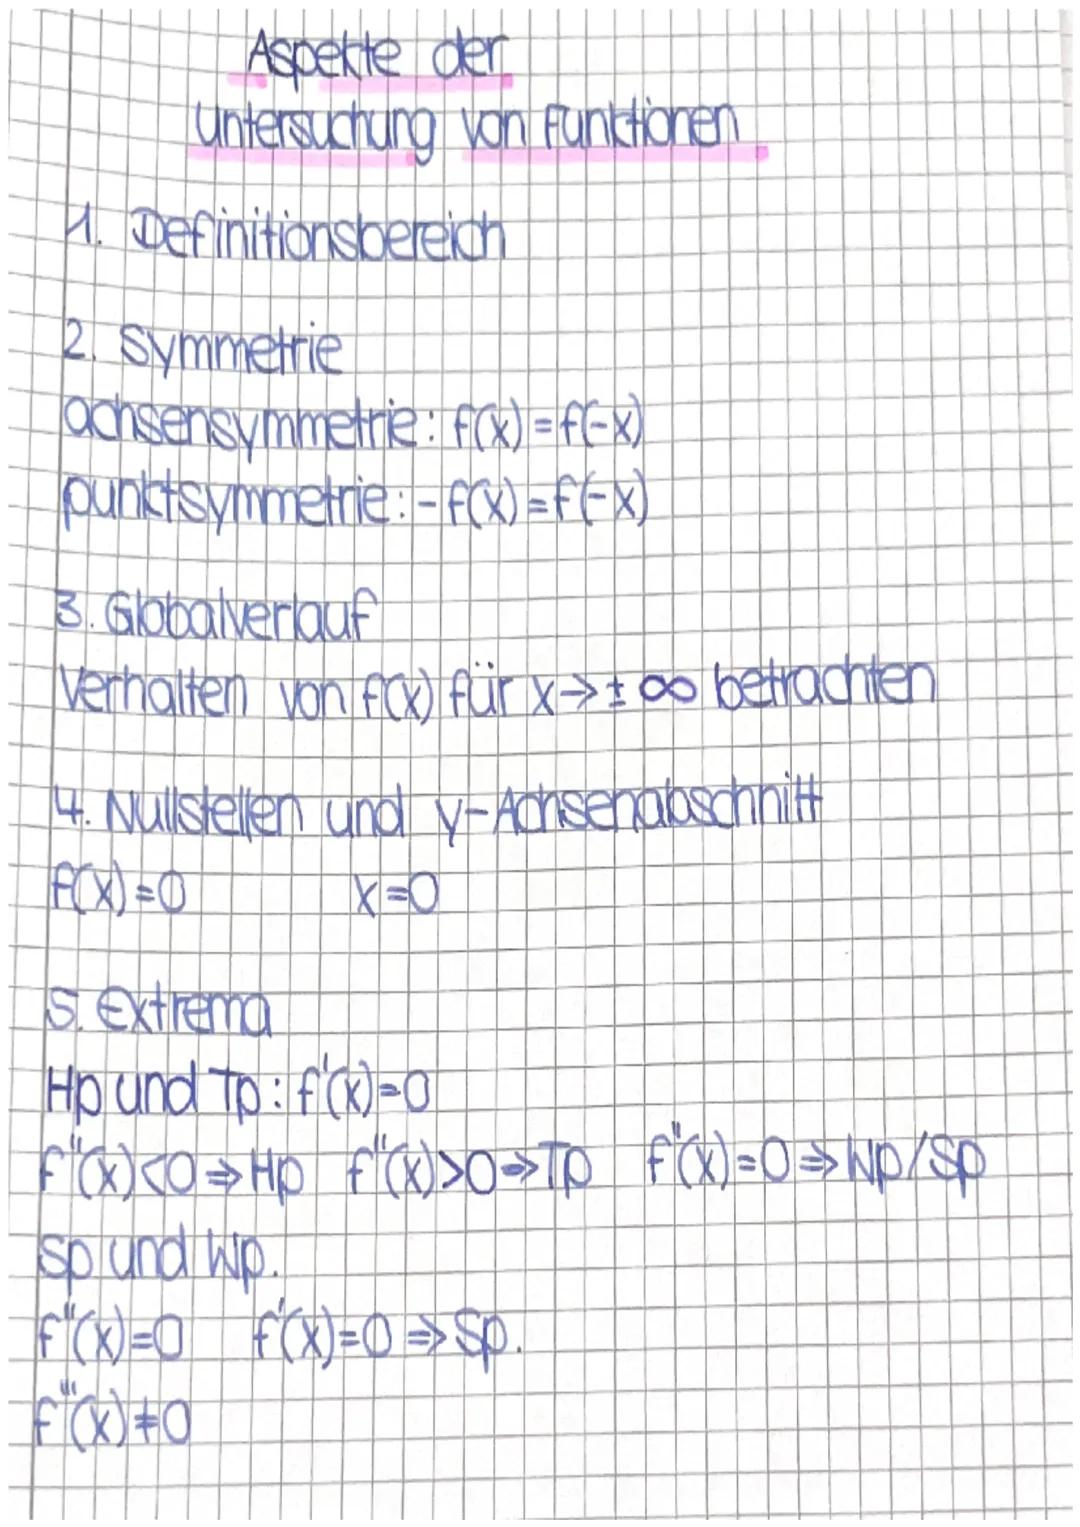 Aspekte der
Untersuchung von Funktionen
1. Definitionsbereich
2. Symmetrie
achsensymmetrie: f(x) = f(-x)
punktsymmetrie: - f(x) = f(-x)
3. Globalverlauf
Verhalten von f(x) für x → ± ∞ betrachten
4. Nullstellen und y-Achsenabschnitt
f(x) = 0 x = 0
5. Extrema
Hp und Tp: f'(x) = 0
f''(x) < 0 ⇒ Hp f''(x) > 0 ⇒ Tp f''(x) = 0 ⇒ Wp/Sp
Sp und Wp.
f''(x) = 0 f'(x) = 0 ⇒ Sp.
f'''(x) ≠ 0